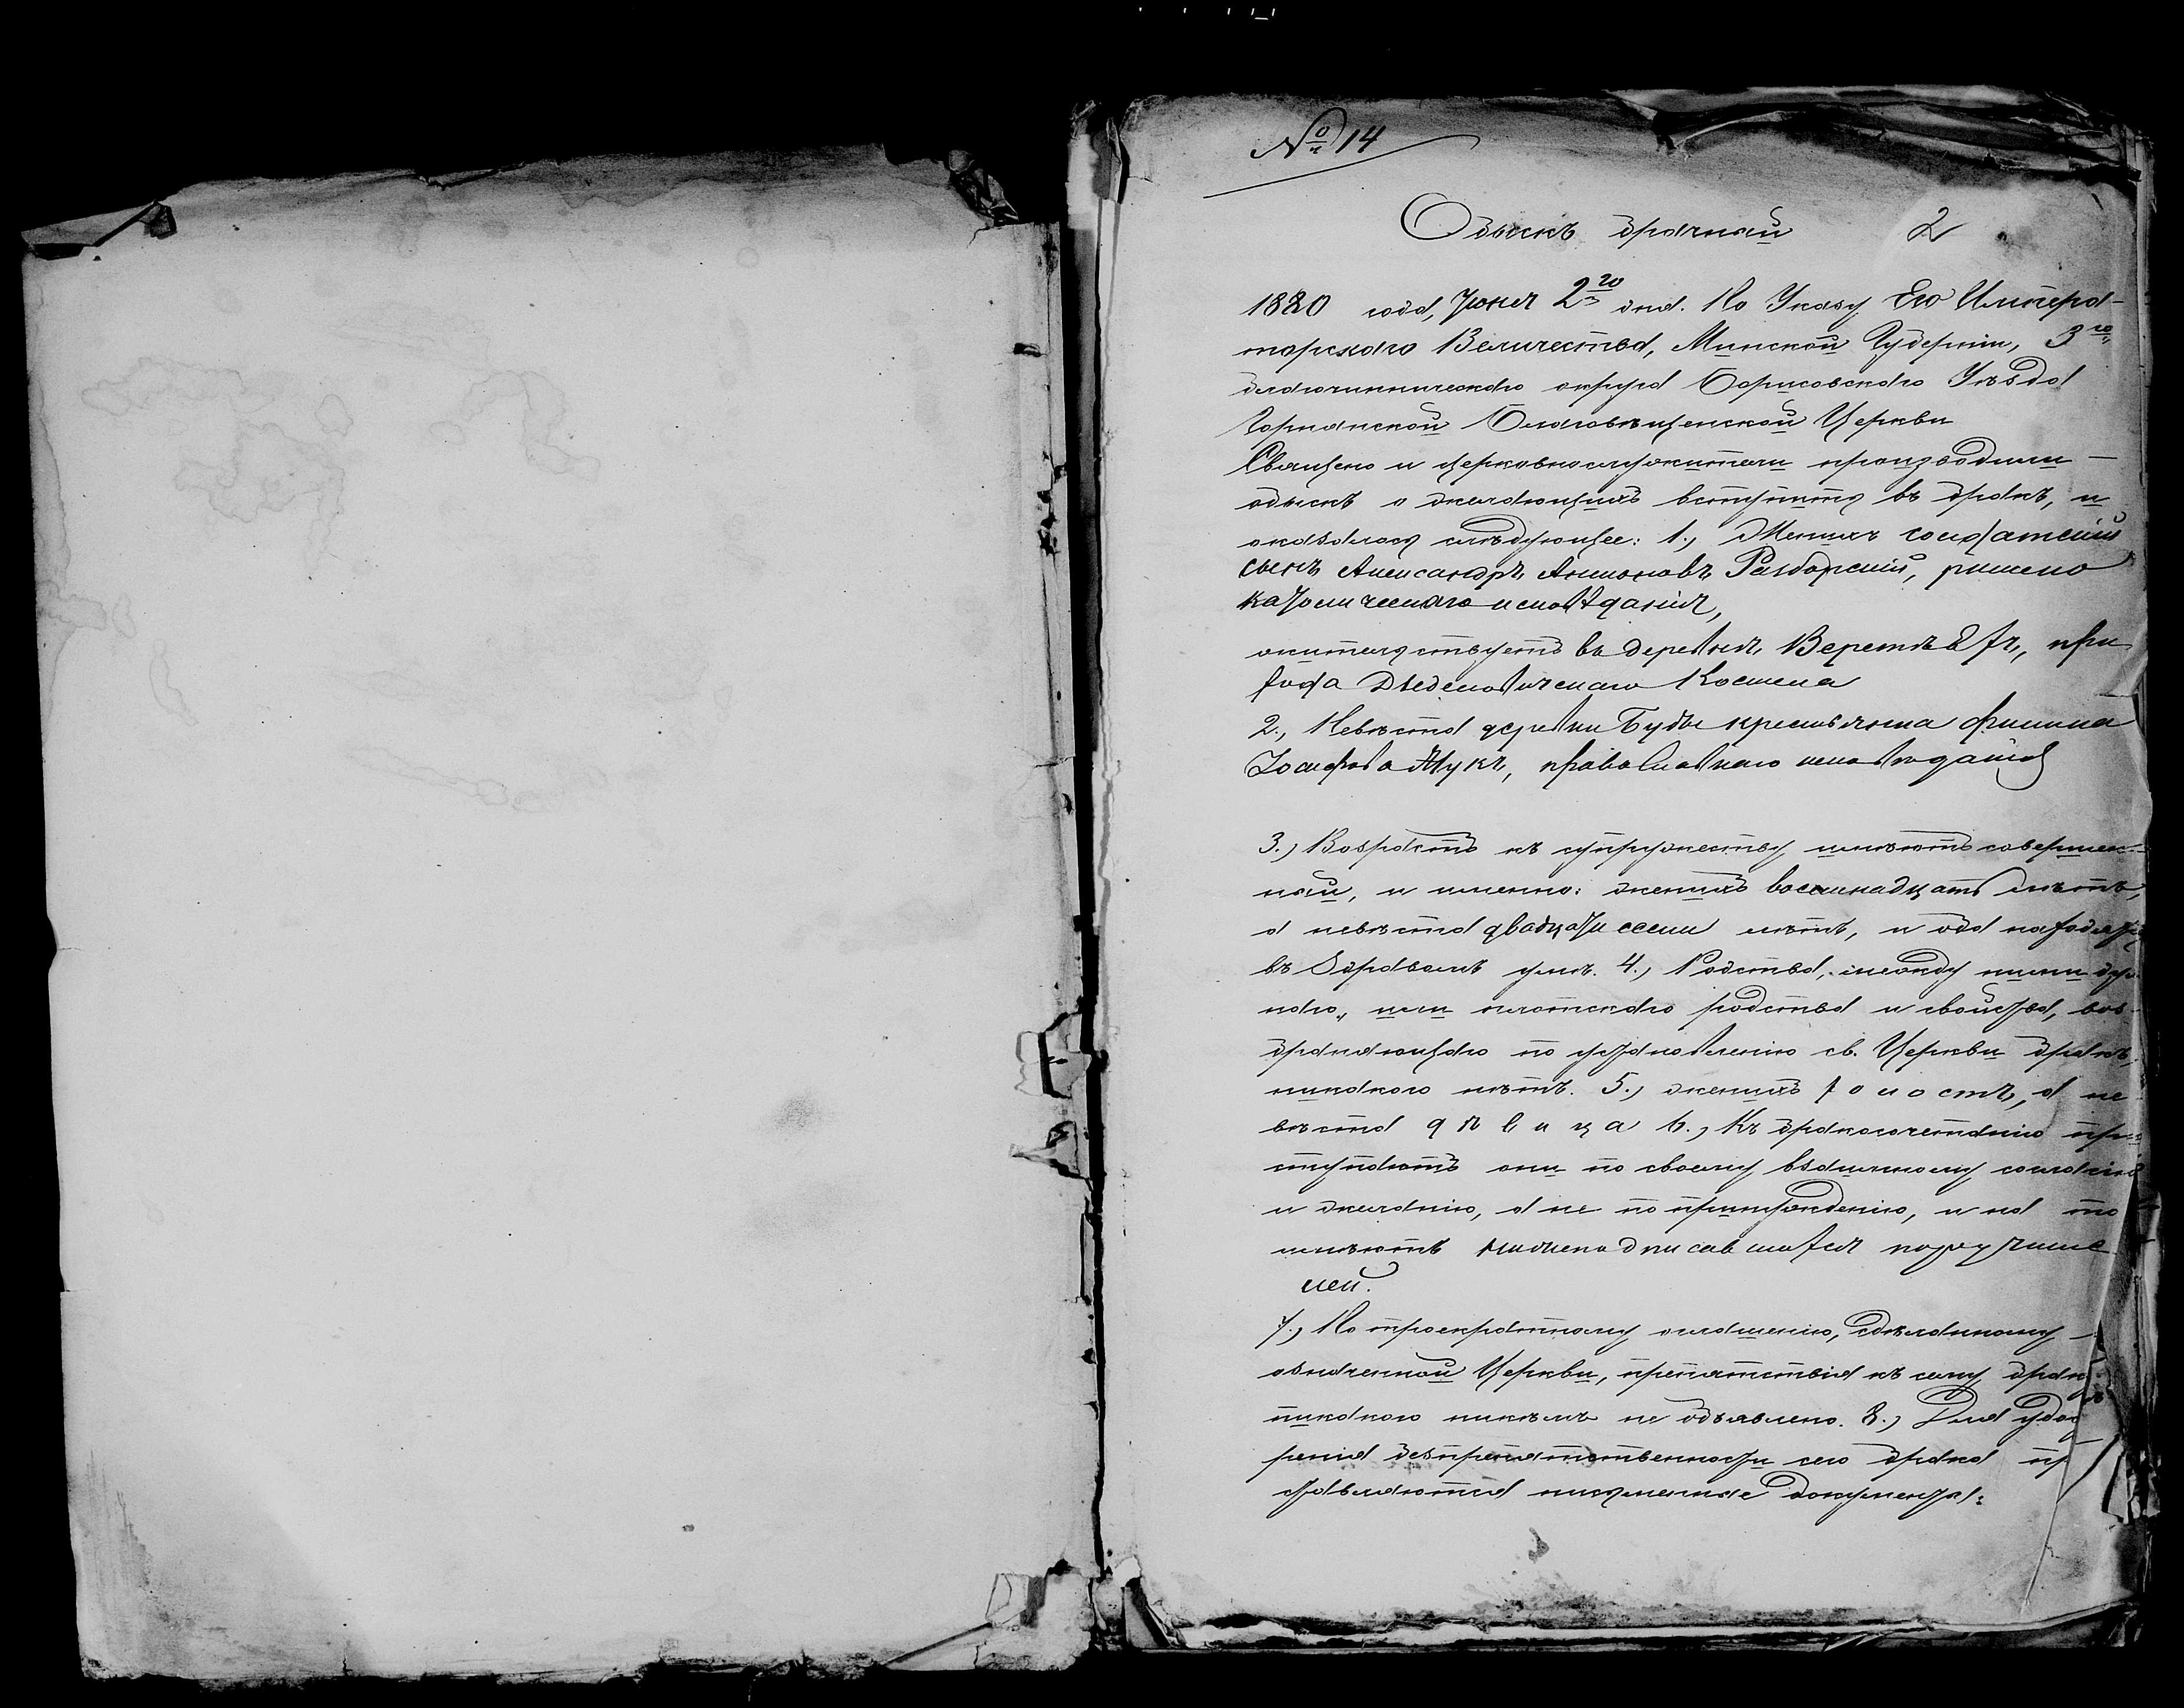 № 14
Обыскъ брачный 2
1880 года, Іюня 2го дня. По Указу Его Импера-
торскаго Величества, Минской Губерніи, 3го
благочинническаго округа Борисовскаго Уѣзда
Горнянской Благовѣщенской Церкви
Священо и церковнослужители производили —
обыскъ о желающихъ вступить въ бракъ, и
оказалось слѣдующее: 1., Женихъ солдатскій
сынъ Александръ Антоновъ, римско
католическаго исповѣданія,
жительствуетъ въ деревнѣ при
хода Костела
2., Невѣста деревни Буды крестьянка
Іосифова Жукъ, православнаго исповѣданія
3., Возрастъ къ супружеству имѣютъ совершен-
ный, и именно: женихъ восемнадцать лѣтъ,
а невѣста двадцати семи лѣтъ, и оба находятся
въ здравомъ умѣ. 4., Родства, между ними дух.
наго, или плотскаго родства и свойства, воз-
браняющаго по установленію св. Церкви бракъ,
никакого нѣтъ. 5., женихъ холостъ, а не
вѣста дѣвица 6., Къ бракосочетанію при-
ступаютъ они по своему взаимному согласію
и желанію, а не по принужденію, и на то
имѣютъ нижеподписавшихся поручите
лей.
7., По троекратному оглашенію, сдѣланному —
означенной Церкви, препятствія къ сему браку
никакого никѣмъ не объявлено. 8., Для удос
ренія безпрепятственности сего брака пр
ставляются письменные документы: